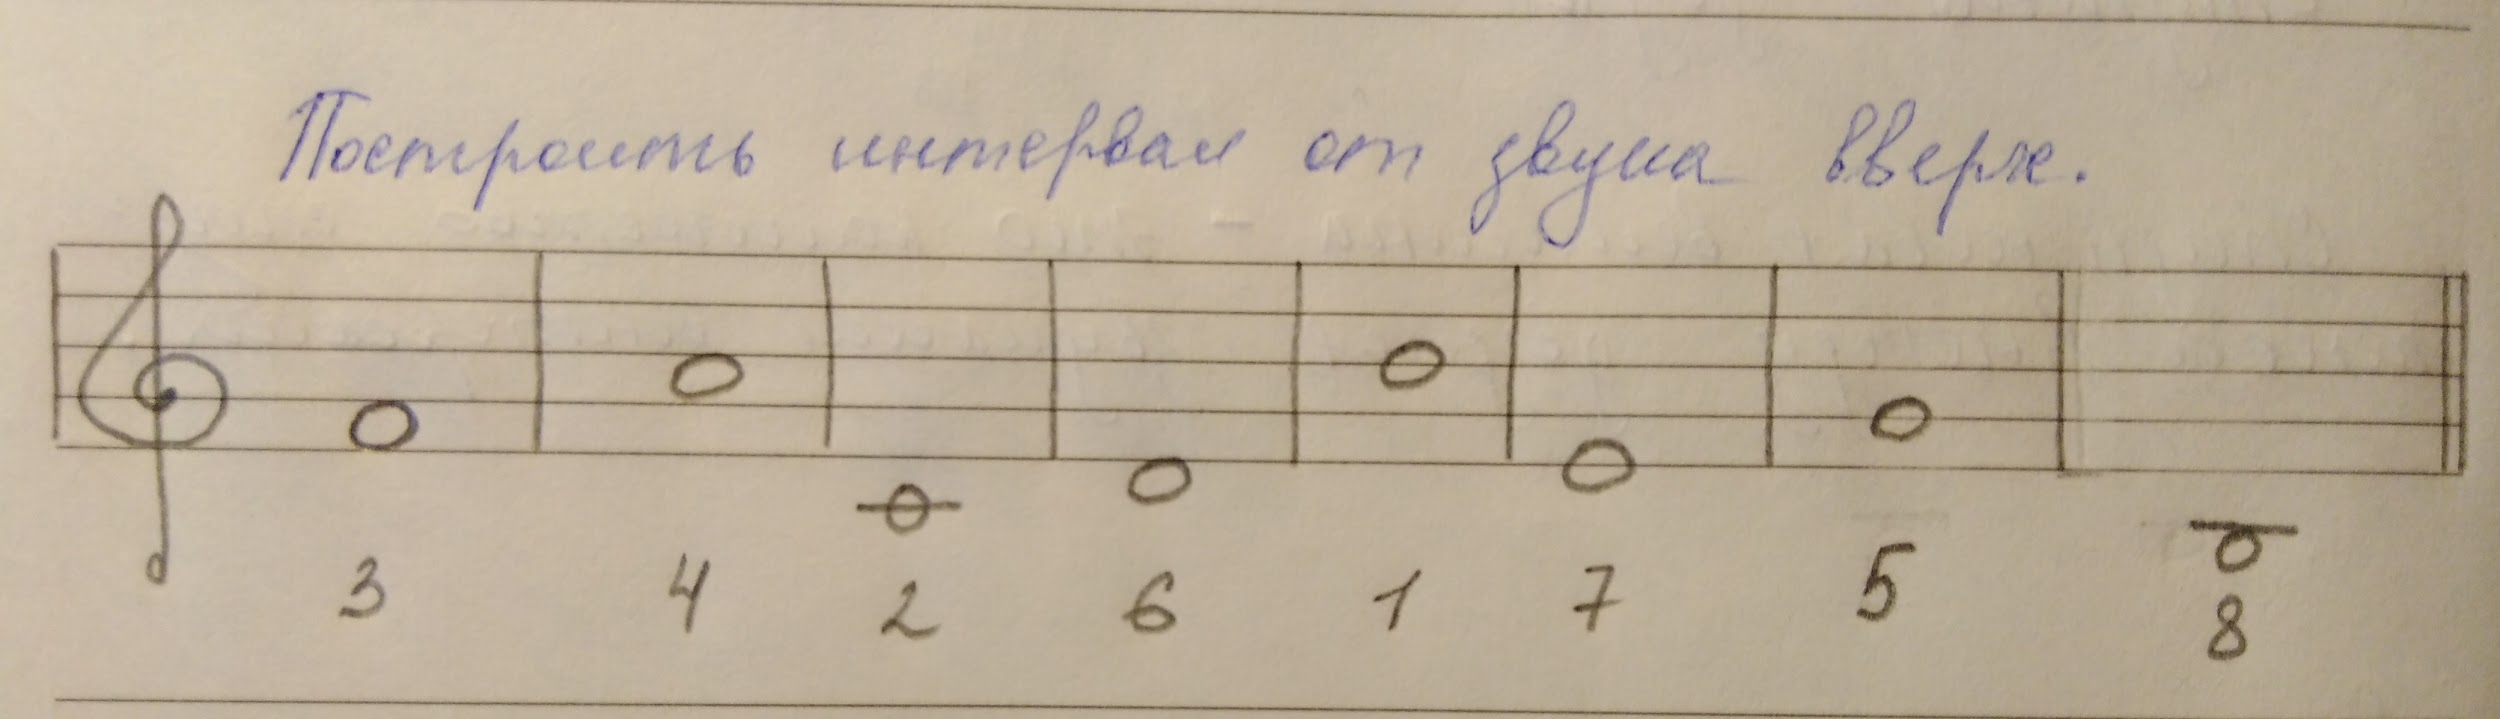 Построить интервал от звука вверх.
3 4 2 6 1 7 5 8